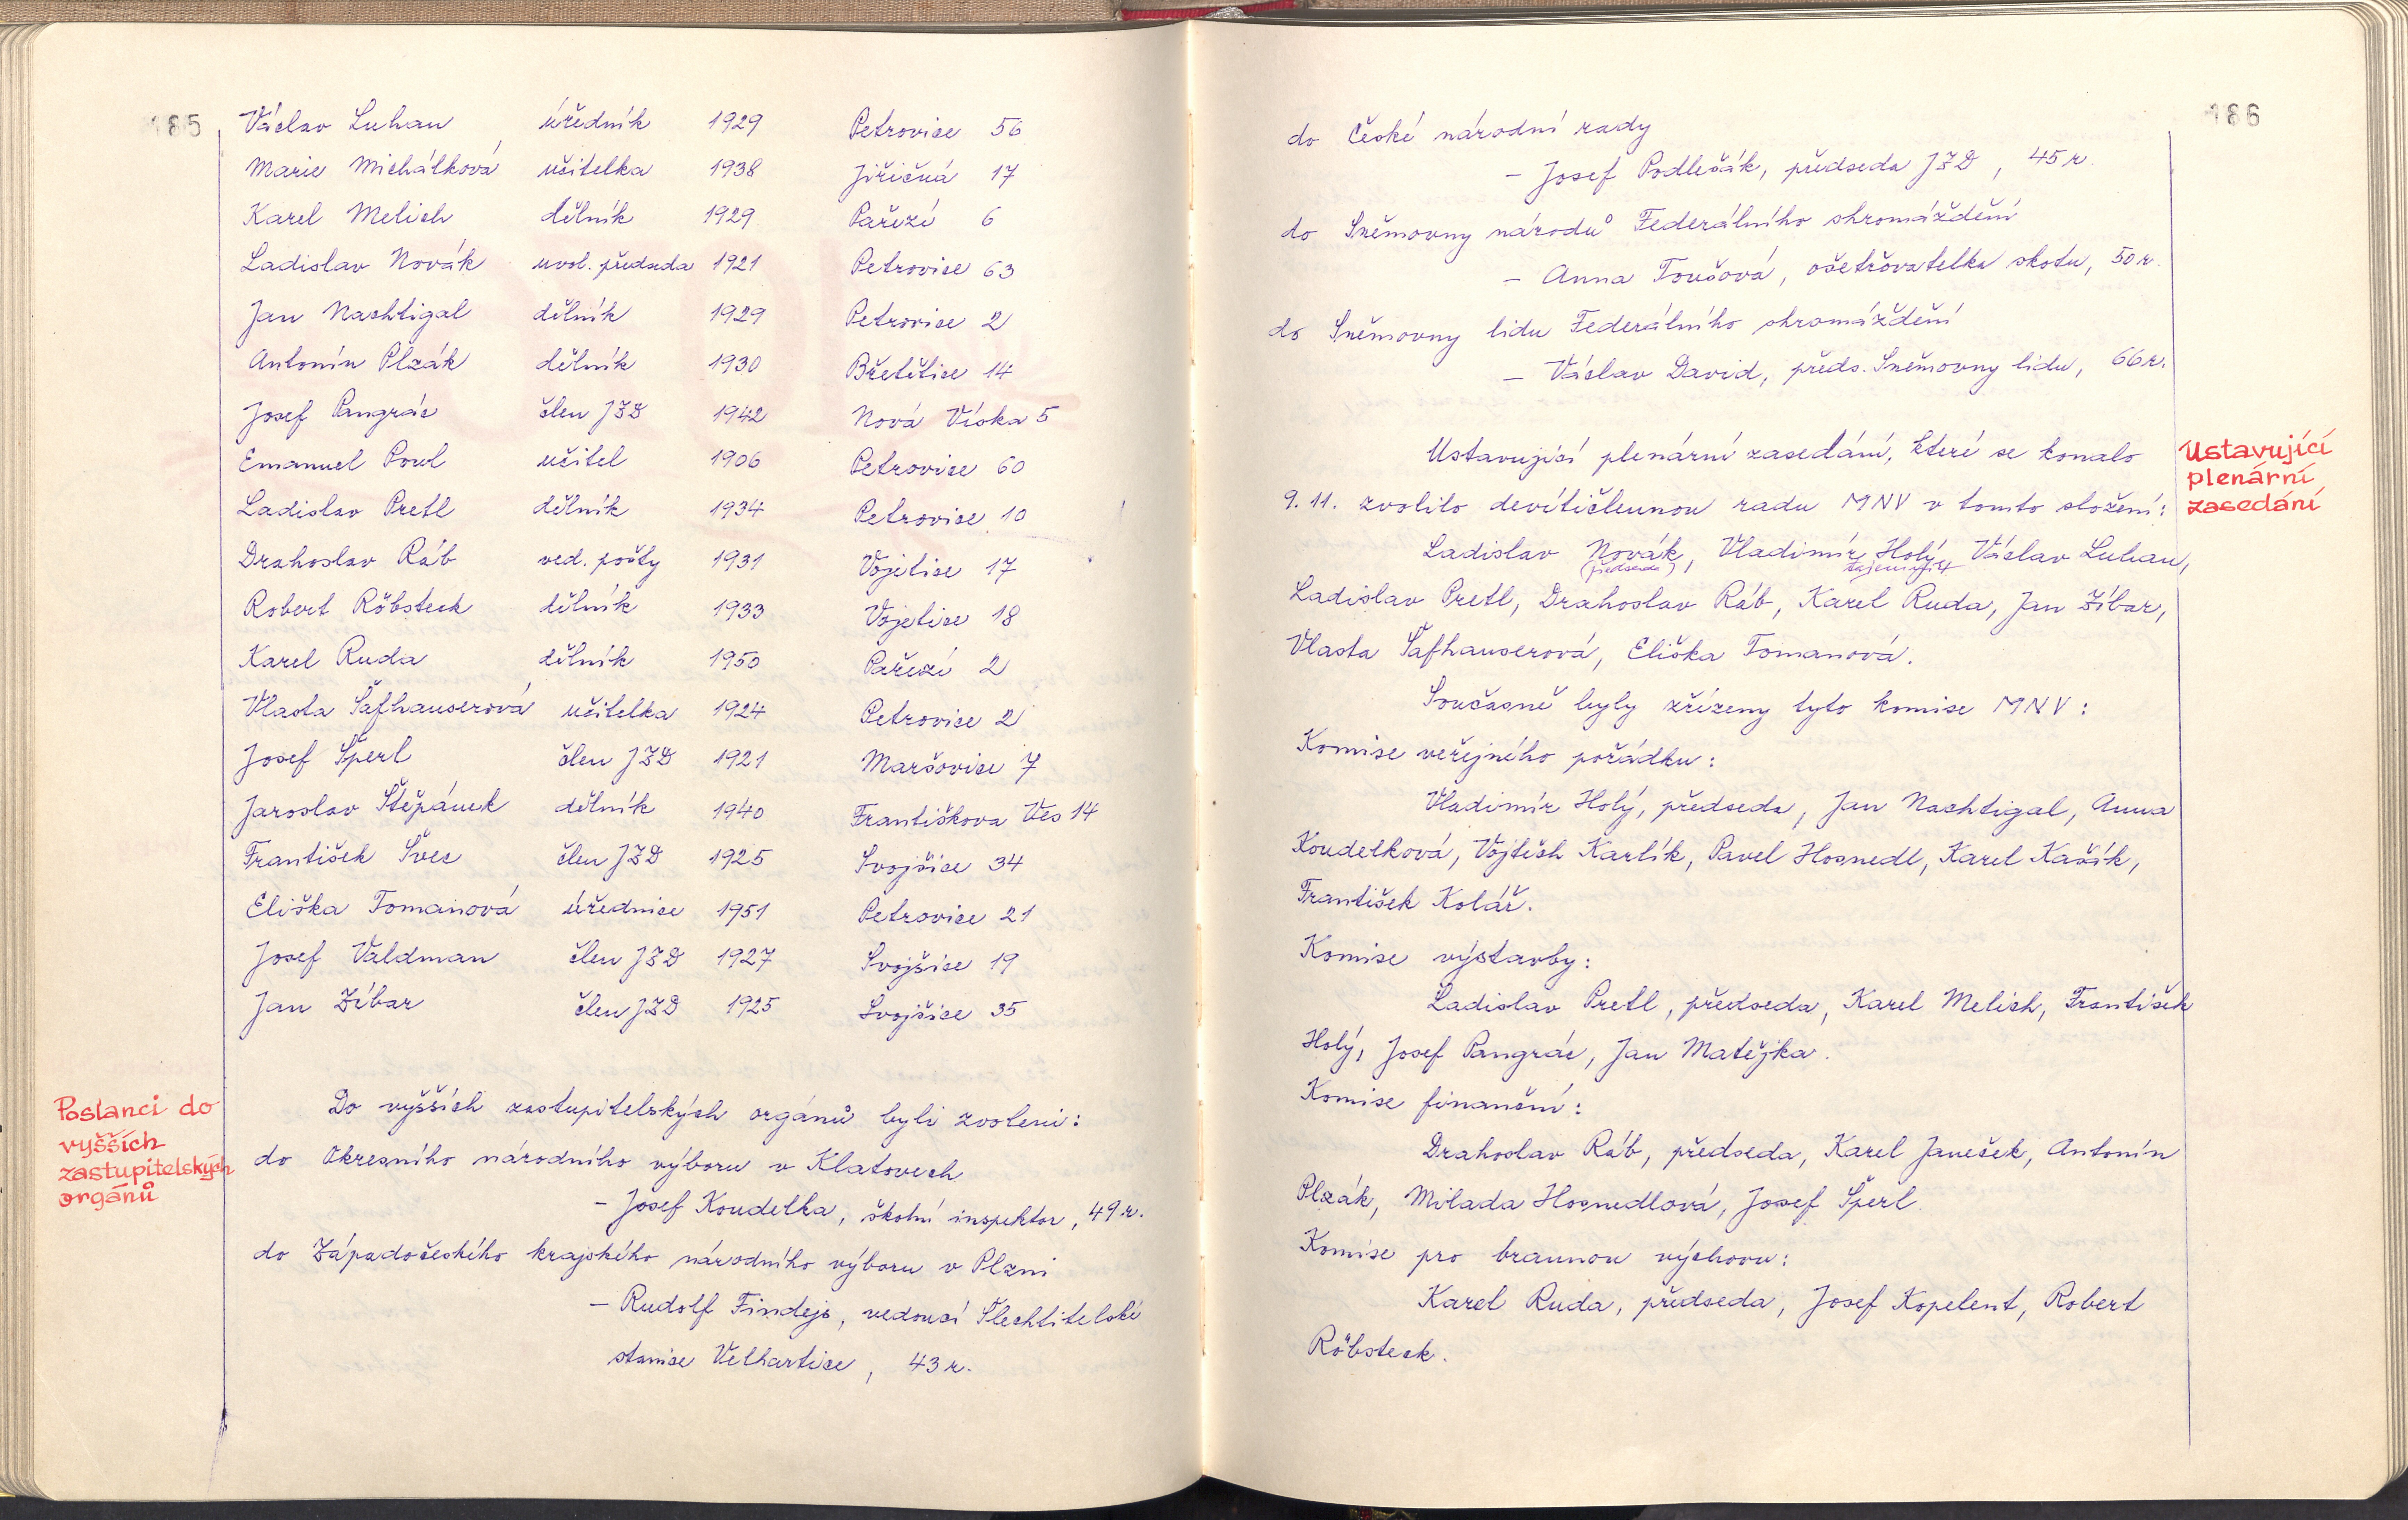 185
Václav Luhan úředník 1929 Petrovice 56
Marie Michálková učitelka 1938 Jiřičná 17
Karel Melich dělník 1929 Pařezí 6
Ladislav Novák uvol. předseda 1921 Petrovice 63
Jan Nachtigal dělník 1929 Petrovice 2
Antonín Plzák dělník 1930 Břetětice 14
Josef Pangrác člen JZD 1942 Nová Víska 5
Emanuel Powl učitel 1906 Petrovice 60
Ladislav Pretl dělník 1934 Petrovice 10
Drahoslav Ráb ved. pošty 1931 Vojetice 17
Robert Röbsteck dělník 1933 Vojetice 18
Karel Ruda dělník 1950 Pařezí 2
Vlasta Šafhauserová učitelka 1924 Petrovice 2
Josef Šperl člen JZD 1921 Maršovice 7
Jaroslav Štěpánek dělník 1940 Františkova Ves 14
František Švec člen JZD 1925 Svojšice 34
Eliška Tomanová úřednice 1951 Petrovice 21
Josef Valdman člen JZD 1927 Svojšice 19
Jan Zíbar člen JZD 1925 Svojšice 35
Poslanci do
vyšších
zastupitelských
orgánů
Do vyšších zastupitelských orgánů byli zvoleni:
do Okresního národního výboru v Klatovech
- Josef Koudelka, školní inspektor, 49 r.
do Západočeského krajského národního výboru v Plzni
- Rudolf Findejs, vedoucí Šlechtitelské
stanice Velhartice, 43 r.
186
do České národní rady
- Josef Podlešák, předseda JZD, 45 r.
do Sněmovny národů Federálního shromáždění
- Anna Toušová, ošetřovatelka skotu, 50 r.
do Sněmovny lidu Federálního shromáždění
- Václav David, předs. Sněmovny lidu, 66 r.
Ustavující
plenární
zasedání
Ustavující plenární zasedání, které se konalo
9. 11. zvolilo devítičlennou radu MNV v tomto složení:
Ladislav Novák, Vladimír Holý, Václav Luhan,
(předseda) tajemník
Ladislav Pretl, Drahoslav Ráb, Karel Ruda, Jan Zíbar,
Vlasta Šafhauserová, Eliška Tomanová.
Současně byly zřízeny tyto komise MNV:
Komise veřejného pořádku:
Vladimír Holý, předseda, Jan Nachtigal, Anna
Koudelková, Vojtěch Karlík, Pavel Hosnedl, Karel Kašík,
František Kolář.
Komise výstavby:
Ladislav Pretl, předseda, Karel Melich, František
Holý, Josef Pangrác, Jan Matějka.
Komise finanční:
Drahoslav Ráb, předseda, Karel Janeček, Antonín
Plzák, Milada Hosnedlová, Josef Šperl.
Komise pro brannou výchovu:
Karel Ruda, předseda, Josef Kopelent, Robert
Röbsteck.